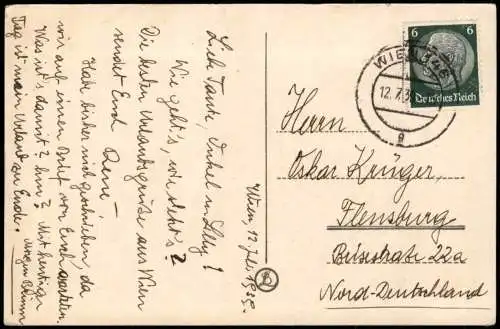 Liebe Tante, Onkel u. Lilly!
Wie geht's, wie steht's?
Die besten Urlaubsgrüße aus Wien
sendet Euch Rene –
Habe bisher nicht geschrieben, da
wir auf einen Brief von Euch warteten.
Was ist's damit? hm? Mit heutigem
Tag ist mein Urlaub zu Ende.
Wien, 12. Juli 1939.
6 6
Deutsches Reich
WIEN
12.7.3
g
Herrn
Oskar Krüger,
Flensburg
22a
Nord-Deutschland